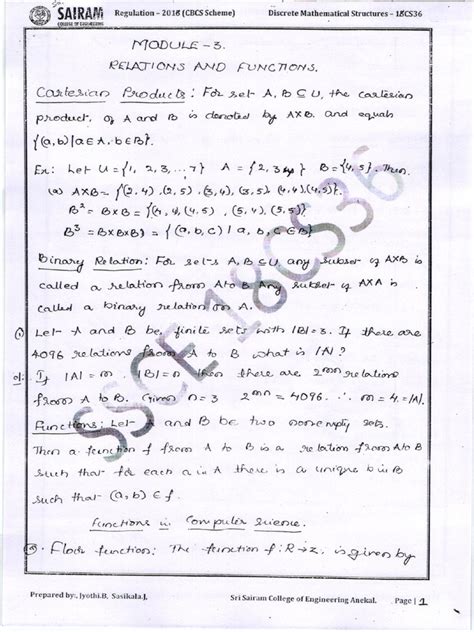 SAIRAM
COLLEGE OF ENGINEERING
Regulation – 2018 (CBCS Scheme)
Discrete Mathematical Structures – 18CS36
MODULE - 3.
RELATIONS AND FUNCTIONS.
Cartesian Products : For set A, B ⊆ U, the cartesian
product, of A and B is denoted by AXB. and equals
{(a,b) | a∈A, b∈B}.
Ex: Let U = {1, 2, 3, ...7} A = {2, 3, 4} B = {4, 5}. Then
(a) AXB = {(2,4), (2,5), (3,4), (3,5), (4,4), (4,5)}.
B² = BXB = {(4,4), (4,5), (5,4), (5,5)}
B³ = BXBXB = {(a,b,c) | a, b, c ∈ B}
Binary Relation: For sets A, B ⊆ U any subset of AXB is
called a relation from A to B Any subset of AXA is
called a binary relation on A.
(1) Let A and B be finite sets with |B| = 3. If there are
4096 relations from A to B what is |A| ?
If |A| = m |B| = n then there are 2^mn relations
from A to B. Given n = 3 2^mn = 4096 ∴ m = 4 = |A|.
Functions: Let A and B be two nonempty sets.
Then a function f from A to B is a relation from A to B
such that for each a in A there is a unique b in B
such that (a, b) ∈ f.
Functions in Computer science.
Floor function: The function f: R→Z, is given by
SSCE 18CS36
Prepared by:, Jyothi.B, Sasikala.J,
Sri Sairam College of Engineering Anekal.
Page | 1